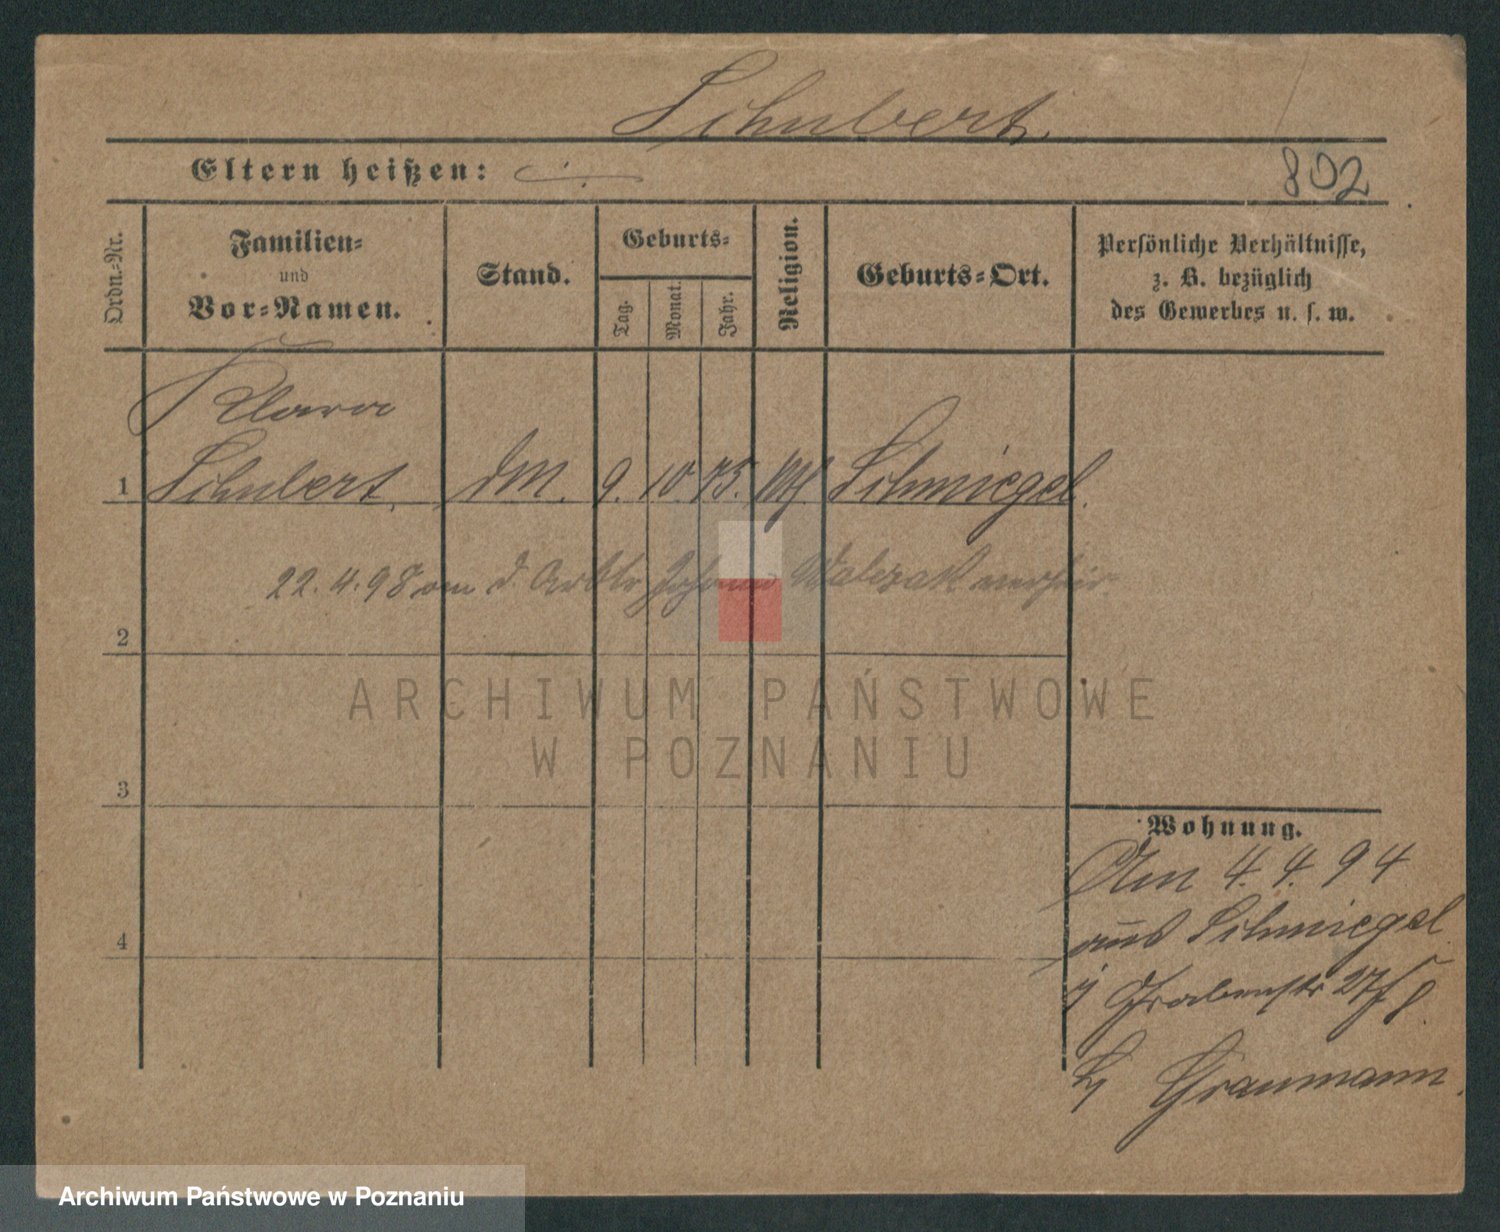 Schubert.
Eltern heißen:
802
Ordn.-Nr.
Familien-
und
Vor-Namen.
Stand.
Geburts-
Tag.
Monat.
Jahr.
Religion.
Geburts-Ort.
Persönliche Verhältnisse,
z. B. bezüglich
des Gewerbes u. s. w.
Klara
1 Schubert, DM. 9. 10 75. Schmiegel.
22.4.98 d. Arbtr Johann Walczak
2
ARCHIWUM PAŃSTWOWE
W POZNANIU
3
Wohnung.
Am 4.4.94
aus Schmiegel
Grabenstr 27
4
Graumann.
Archiwum Państwowe w Poznaniu